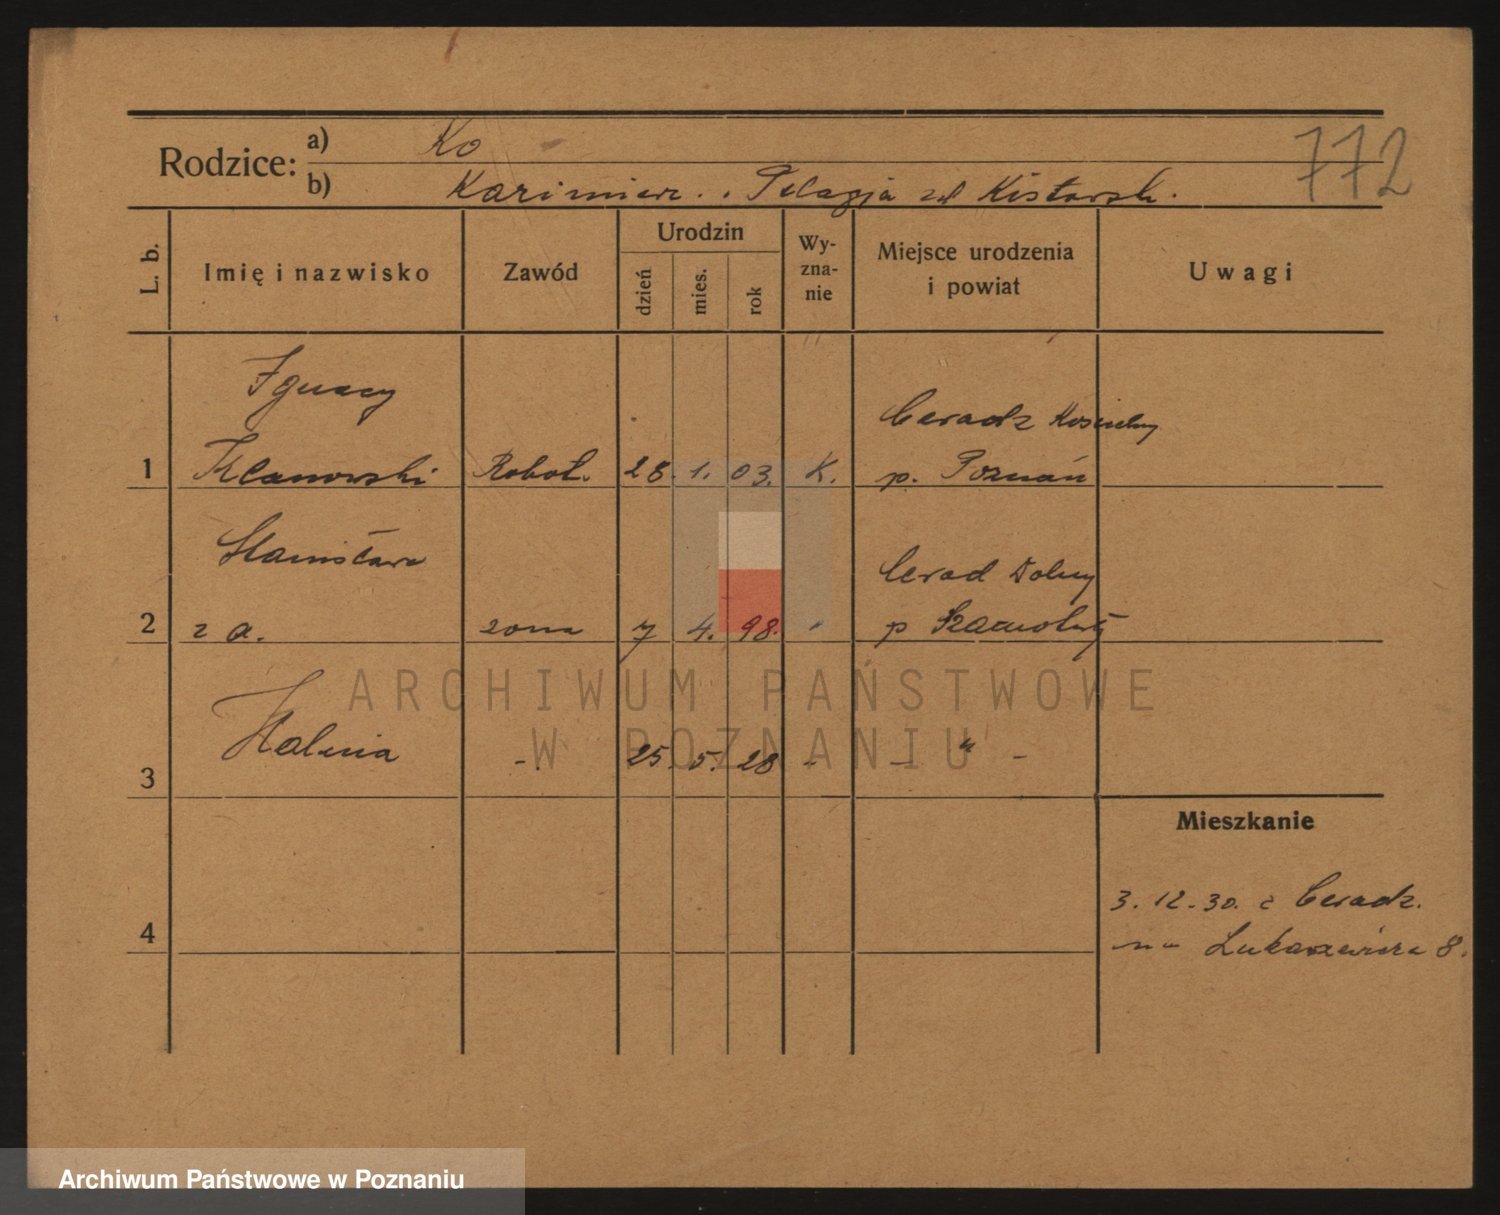 772
Rodzice:
a) Ko
b) Kazimierz. Pelagja
L. b.
Imię i nazwisko
Zawód
Urodzin
dzień
mies.
rok
Wy-
zna-
nie
Miejsce urodzenia
i powiat
Uwagi
Ignacy
Ceradz Kościelny
1 Klanowski Robot. 28. 1. 03. K. p. Poznań
Stanisława
Cerad Dolny
2 z a. zona 7 4. 98. " p Szamotuły
3 Halina -. 25. 5. 28 - - " -
Mieszkanie
4
3. 12. 30. z Ceradz.
na Lukaszewicza 8.
ARCHIWUM PAŃSTWOWE
W POZNANIU
Archiwum Państwowe w Poznaniu